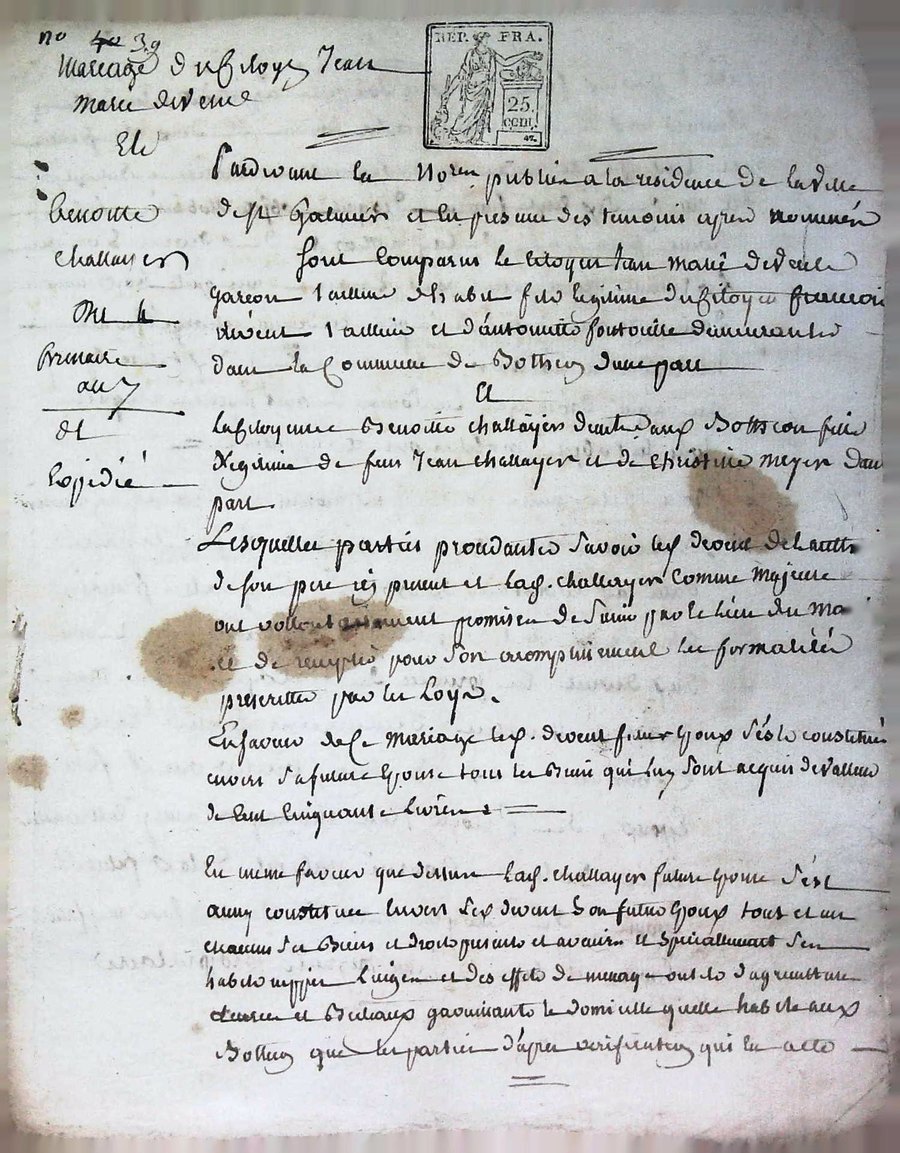 no 39
Mariage du Citoyen Jean
Marie devert
Et
benoitte
challayer
brumaire
an 7
et
Expédié
REP. FRA.
25.
CEN.
Pardevant le Nore public a la résidence de la ville
de St Galmier et en presence des temoins apres nommés
sont Comparus le Citoyen Jean Marie devert
garcon tailleur d'habit fils legitime du Citoyen francois
devert tailleur et d'antoinette demeurants
dans la Commune de Bottheon d'une part
Et
la Citoyenne Benoitte challayer Bottheon fille
legitime de feu Jean challayer et de Christine Meyer d'au
part.
Lesquelles parties procedantes savoir le C. devert de l'autté
de son pere icy present et la C. challayer Comme Majeure
ont vollontairement promises de s'unir par le lien du Ma
ge de remplir pour son accomplissement les formalités
prescrittes par les Loys.
En faveur de Ce Mariage le C. devert futur Epoux s'est constitué
envers sa future Epouse tous les Biens qui luy sont acquis de valleur
de Cent Cinquante Livres
En même faveur que dessus la C. challayer future Epouse s'est
aussy constituee Envers le C. devert son futur Epoux tous et un
chacuns ses Biens et droits presents et avenir et specialement ses
habits nippes Linges et des effets de menage outils d'agriculture
et Bestiaux garnissants le domicille quelle habite aux
Bottheon que les parties d'apres verification qui en a eté